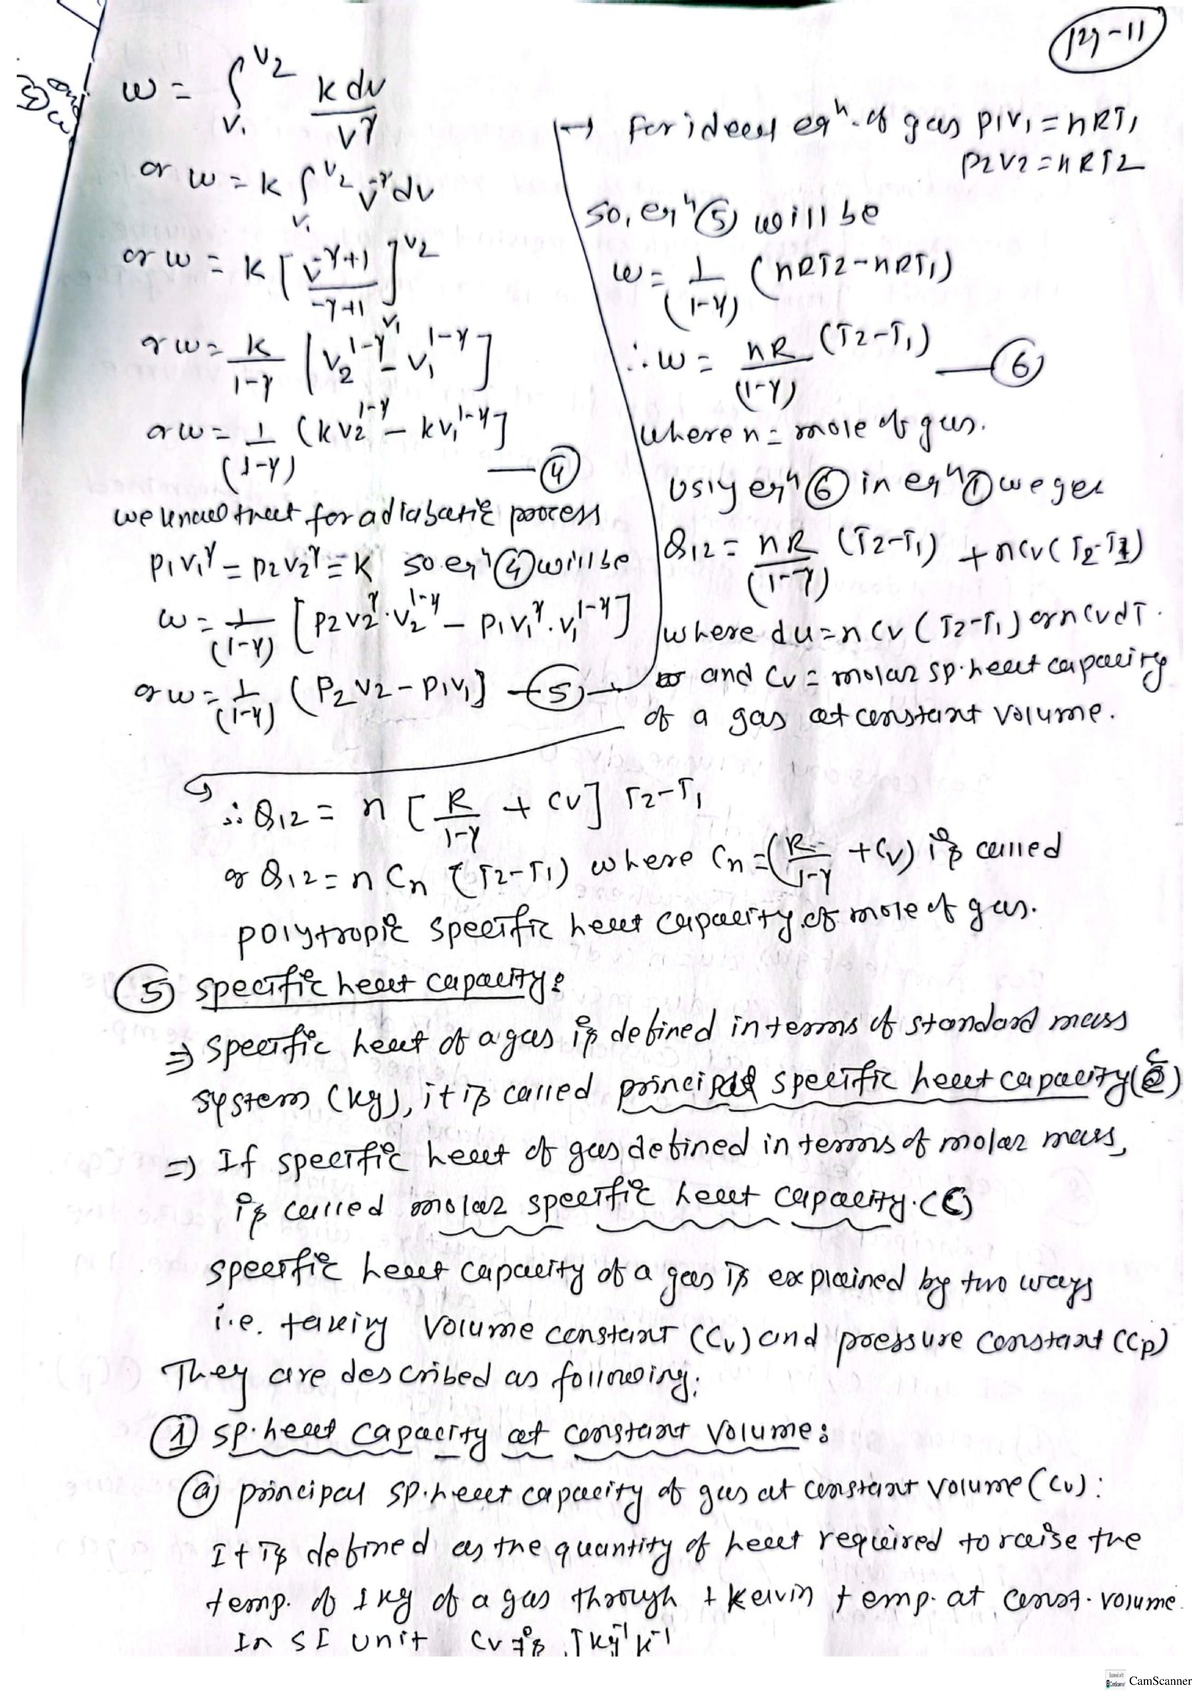 pg-11
w = ∫_{V1}^{V2} k dv / v^γ
or w = k ∫_{V1}^{V2} v^{-γ} dv
or w = k [v^{-γ+1} / -γ+1]_{V1}^{V2}
or w = k/1-γ [V2^{1-γ} - V1^{1-γ}]
or w = 1/(1-γ) (kV2^{1-γ} - kV1^{1-γ}] —④
we know that for adiabatic process
P1V1^γ = P2V2^γ = K so eqn ④ will be
w = 1/(1-γ) [P2V2^γ · V2^{1-γ} - P1V1^γ · V1^{1-γ}]
or w = 1/(1-γ) (P2V2 - P1V1] —⑤
→ for ideal eqn. of gas P1V1 = nRT1
P2V2 = nRT2
so, eqn ⑤ will be
w = 1/(1-γ) (nRT2 - nRT1)
∴ w = nR/(1-γ) (T2-T1) —⑥
where n = mole of gas.
Using eqn ⑥ in eqn ① we get
Q12 = nR/(1-γ) (T2-T1) + nCv(T2-T1)
where du = nCv(T2-T1) or nCvdT.
and Cv = molar sp. heat capacity
of a gas at constant volume.
∴ Q12 = n [R/1-γ + Cv] T2-T1
or Q12 = nCn (T2-T1) where Cn = (R/1-γ + Cv) is called
polytropic specific heat capacity of mole of gas.
⑤ specific heat capacity:
⇒ specific heat of a gas is defined in terms of standard mass
system (kg), it is called principal specific heat capacity (c)
⇒ If specific heat of gas defined in terms of molar mass,
is called molar specific heat capacity. (C)
specific heat capacity of a gas is explained by two ways
i.e. taking volume constant (Cv) and pressure constant (Cp)
They are described as following:
① sp. heat capacity at constant volume:
(a) principal sp. heat capacity of gas at constant volume (Cv):
It is defined as the quantity of heat required to raise the
temp. of 1 kg of a gas through 1 kelvin temp. at const. volume.
In SI unit Cv is J kg⁻¹ k⁻¹
CamScanner